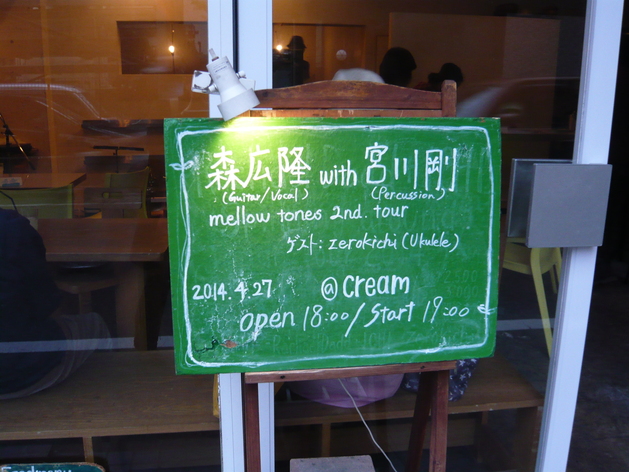 森広隆 with 宮川剛
(Guitar/Vocal) (Percussion)
mellow tones 2nd. tour
ゲスト: zerokichi (Ukulele)
2014. 4. 27 @ cream
open 18:00 / Start 19:00